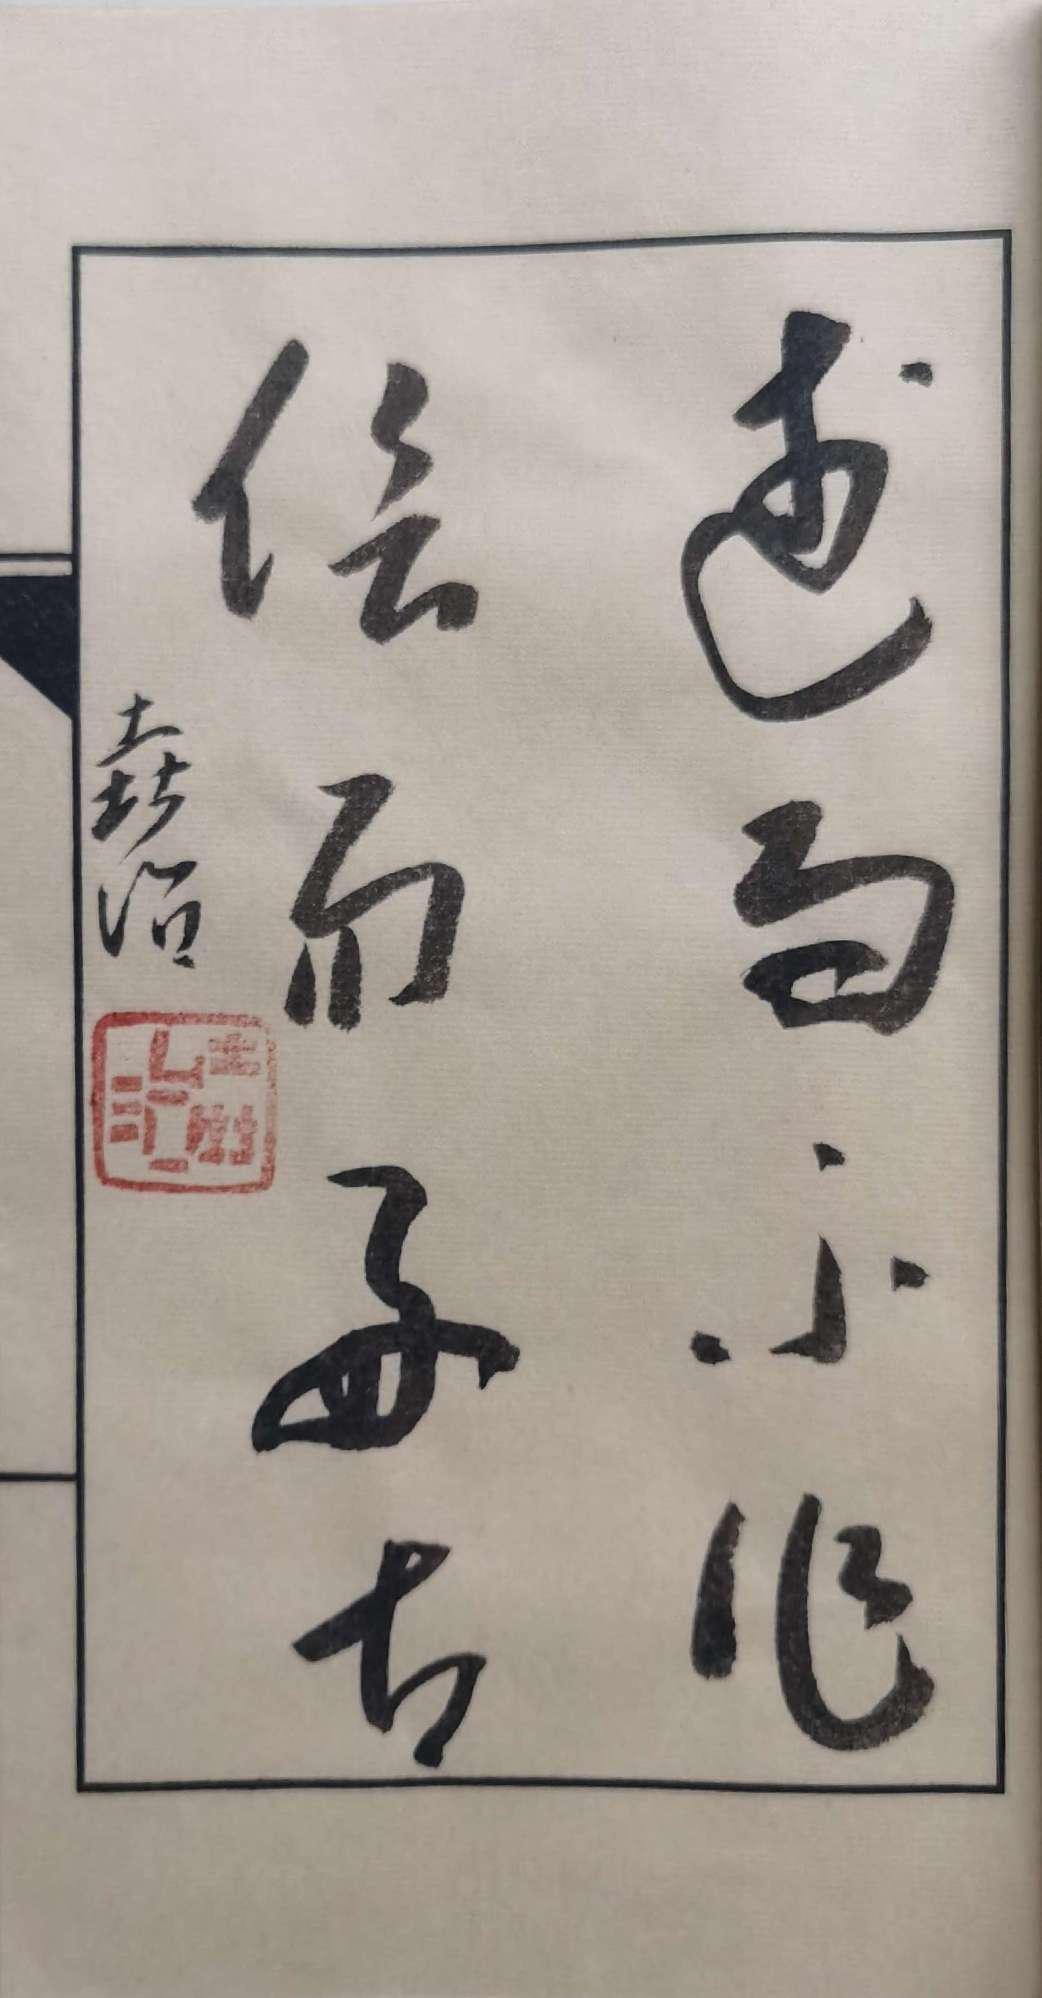 述而不作
信而好古
垚治